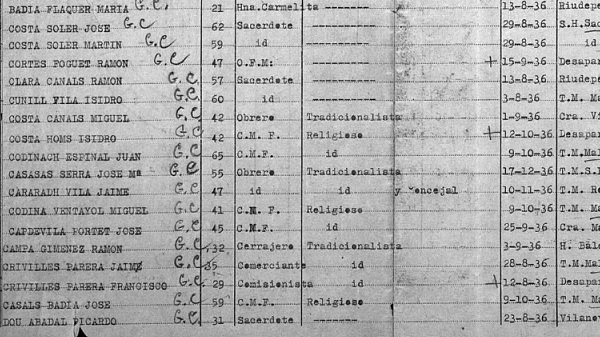 BADIA FLAQUER MARIA G.C. 21 Hna.Carmelita --------- 13-8-36 Riudep
COSTA SOLER JOSE G.C 62 Sacerdote --------- 29-8-36 S.H.Sac
COSTA SOLER MARTIN G.C 59 id --------- 29-8-36 id
CORTES FOGUET RAMON G.C 47 O.F.M: --------- + 15-9-36 Desapar
CLARA CANALS RAMON G.C. 57 Sacerdote --------- 13-8-36 Riudep
CUNILL VILA ISIDRO G.C. 60 id --------- 3-8-36 T.M. Ma
COSTA CANALS MIGUEL G.C 42 Obrero Tradicionalista 1-9-36 Cra. Vi
COSTA HOMS ISIDRO G.C 42 C.M.F. Religioso + 12-10-36 Desapar
CODINACH ESPINAL JUAN G.C 65 C.M.F. id 9-10-36 T.M.Mal
CASASAS SERRA JOSE Mª G.C 55 Obrero Tradicionalista 17-12-36 T.M.S.
CARARADH VILA JAIME G.C 47 id id y concejal 10-11-36 T.M. R
CODINA VENTAYOL MIGUEL G.C 41 C.M.F. Religioso 9-10-36 T.M. Ma
CAPDEVILA PORTET JOSE G.C 45 C.M.F. id 25-9-36 Cra. Ma
CAMPA GIMENEZ RAMON G.C. 32 Cerrajero Tradicionalista 3-9-36 H. Bal
CRIVILLES PARERA JAIME G.C 35 Comerciante id 28-8-36 T.M.Mal
CRIVILLES PARERA FRANCISCO G.C 29 Comisionista id + 12-8-36 Desapa
CASALS BADIA JOSE G.C 59 C.M.F. Religioso 9-10-36 T.M. Ma
DOU ABADAL RICARDO G.C. 31 Sacerdote ------- 23-8-36 Vilano